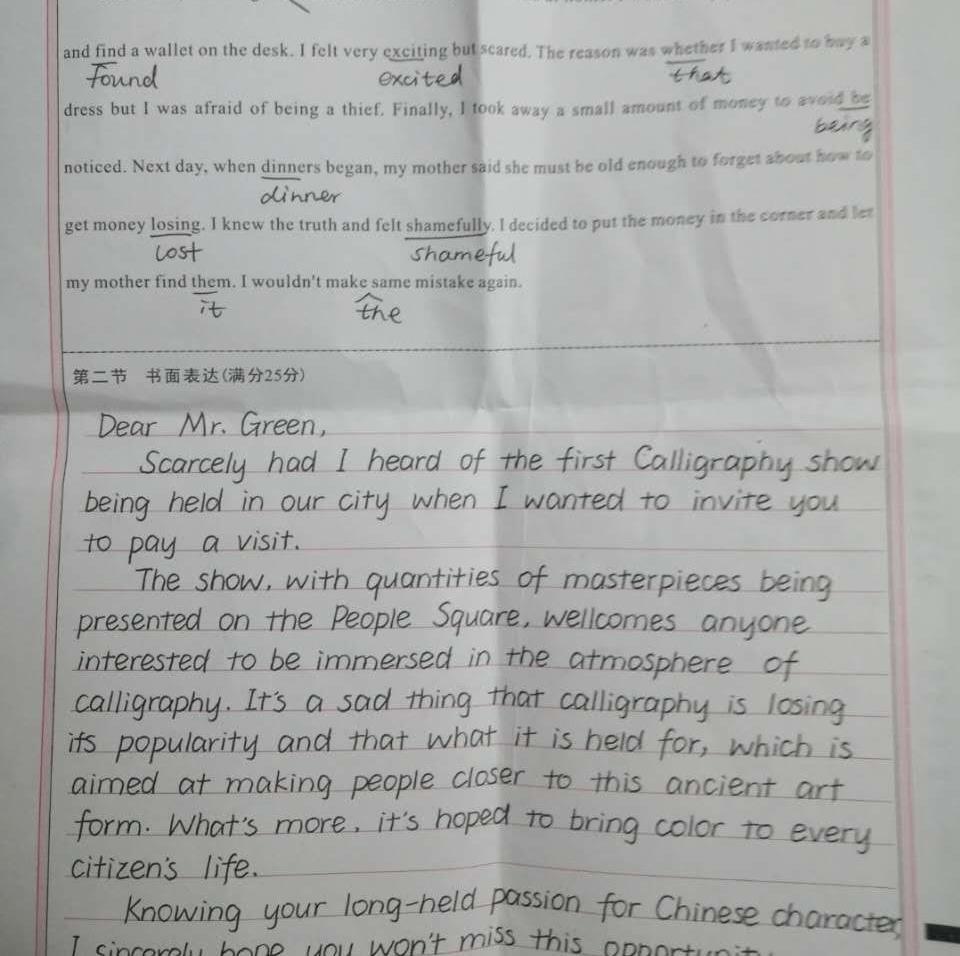 and find a wallet on the desk. I felt very exciting but scared. The reason was whether I wanted to buy a
found excited that
dress but I was afraid of being a thief. Finally, I took away a small amount of money to avoid be
being
noticed. Next day, when dinners began, my mother said she must be old enough to forget about how to
dinner
get money losing. I knew the truth and felt shamefully. I decided to put the money in the corner and let
lost shameful
my mother find them. I wouldn't make same mistake again.
it the
第二节 书面表达(满分25分)
Dear Mr. Green,
Scarcely had I heard of the first Calligraphy show
being held in our city when I wanted to invite you
to pay a visit.
The show, with quantities of masterpieces being
presented on the People Square, wellcomes anyone
interested to be immersed in the atmosphere of
calligraphy. It's a sad thing that calligraphy is losing
its popularity and that what it is held for, which is
aimed at making people closer to this ancient art
form. What's more, it's hoped to bring color to every
citizen's life.
Knowing your long-held passion for Chinese character,
I sincerely hope you won't miss this opportunity